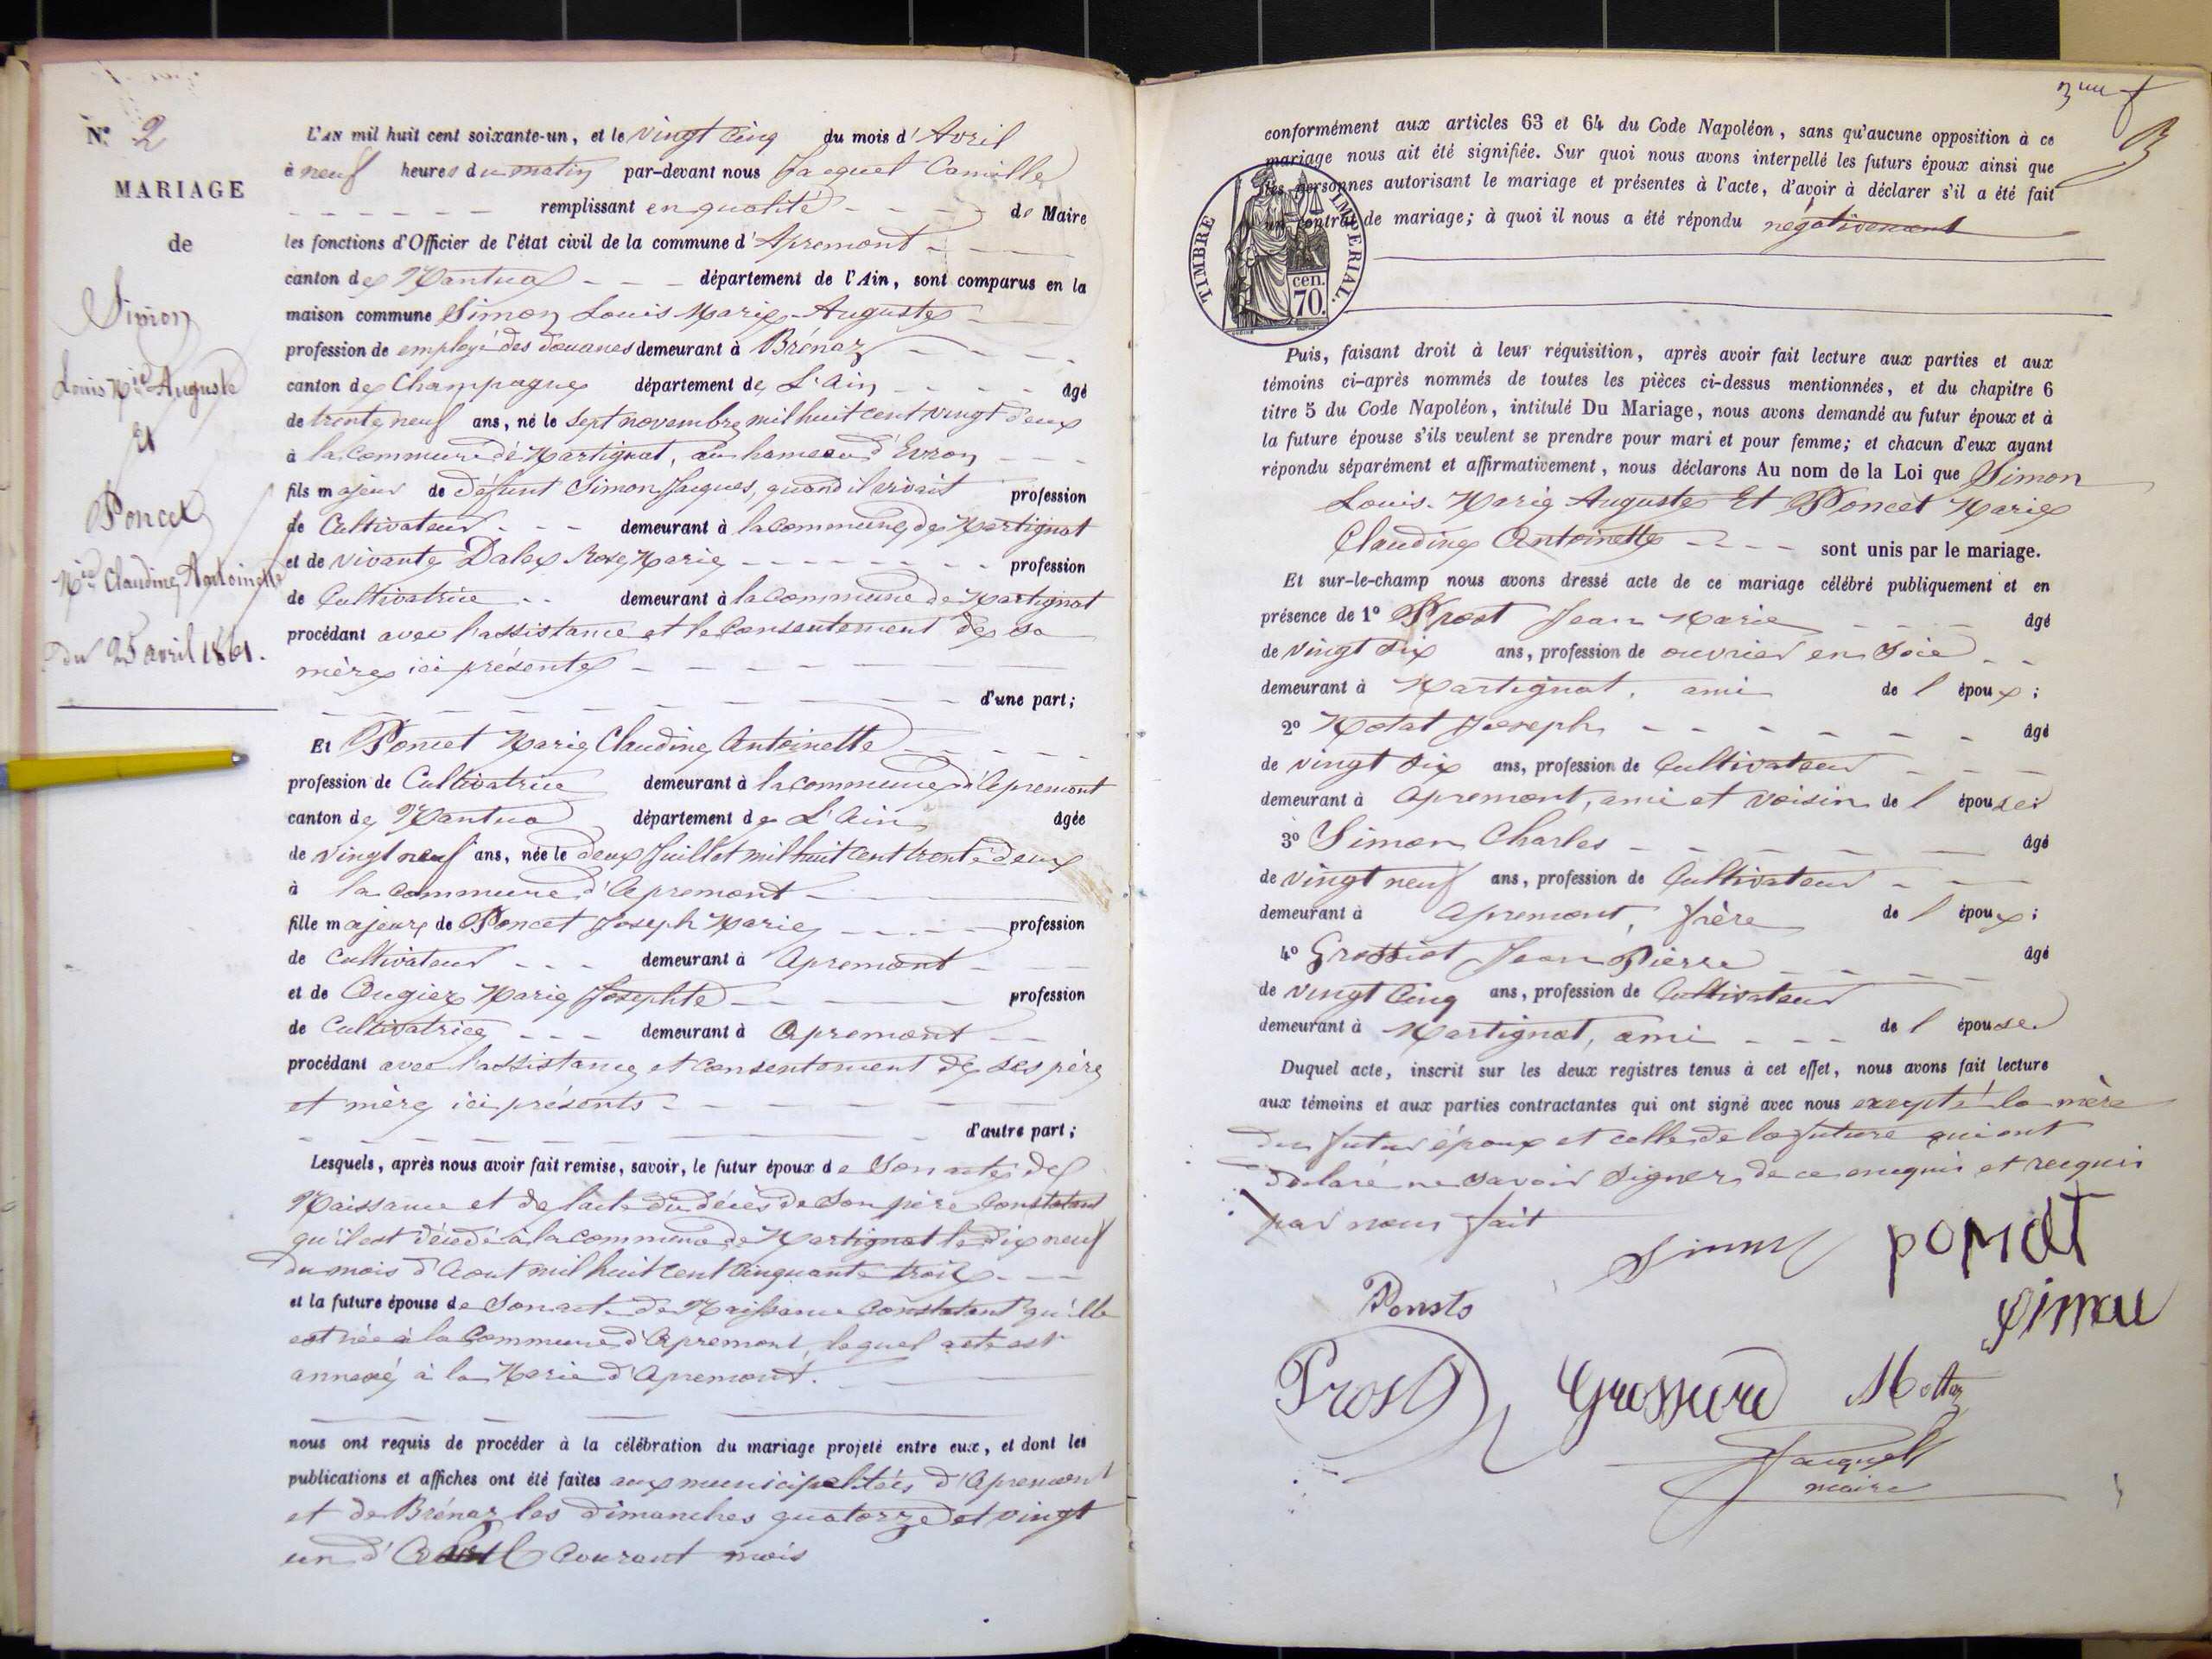 N.° 2
MARIAGE
de
Simon
Louis Mie Auguste
Et
Poncet
Mie Claudine Antoinette
du 25 avril 1861.
L'AN mil huit cent soixante-un, et le vingt cinq du mois d'Avril
à neuf heures du matin par-devant nous Jacquet Camille
remplissant en qualité de Maire
les fonctions d'Officier de l'état civil de la commune d'Apremont
canton de Nantua département de l'Ain, sont comparus en la
maison commune Simon Louis Marie Auguste
profession de employé des douanes demeurant à Brénaz
canton de Champagne département de L'Ain âgé
de trente neuf ans, né le sept novembre mil huit cent vingt deux
à la Commune de Martignat, au hameau d'Evron
fils majeur de défunt Simon Jacques, quand il vivait profession
de Cultivateur demeurant à la Commune de Martignat
et de vivante Dalex Rose Marie profession
de Cultivatrice demeurant à la Commune de Martignat
procédant avec l'assistance et le Consentement de sa
mère ici présente
d'une part;
Et Poncet Marie Claudine Antoinette
profession de Cultivatrice demeurant à la commune d'Apremont
canton de Nantua département de L'Ain âgée
de vingt neuf ans, née le deux Juillet mil huit cent trente deux
à la commune d'Apremont
fille majeure de Poncet Joseph Marie profession
de Cultivateur demeurant à Apremont
et de Ougier Marie Josephte profession
de Cultivatrice demeurant à Apremont
procédant avec l'assistance et consentement de ses père
et mère ici présents
d'autre part;
Lesquels, après nous avoir fait remise, savoir, le futur époux de Son acte de
Naissance et de l'acte du décès de Son père Constatant
qu'il est décédé à la commune de Martignat le dix neuf
du mois d'Aout mil huit cent cinquante trois
et la future épouse de Son acte de Naissance Constatant qu'elle
est née à la Commune d'Apremont, lequel acte est
annexé à la Marie d'Apremont.
nous ont requis de procéder à la célébration du mariage projeté entre eux, et dont les
publications et affiches ont été faites aux municipalités d'Apremont
et de Brénaz les dimanches quatorze et vingt
un d'Avril Courant mois
conformément aux articles 63 et 64 du Code Napoléon, sans qu'aucune opposition à ce
mariage nous ait été signifiée. Sur quoi nous avons interpellé les futurs époux ainsi que
les personnes autorisant le mariage et présentes à l'acte, d'avoir à déclarer s'il a été fait
un contrat de mariage; à quoi il nous a été répondu négativement
TIMBRE IMPÉRIAL.
cen.
70.
Puis, faisant droit à leur réquisition, après avoir fait lecture aux parties et aux
témoins ci-après nommés de toutes les pièces ci-dessus mentionnées, et du chapitre 6
titre 5 du Code Napoléon, intitulé Du Mariage, nous avons demandé au futur époux et à
la future épouse s'ils veulent se prendre pour mari et pour femme; et chacun d'eux ayant
répondu séparément et affirmativement, nous déclarons Au nom de la Loi que Simon
Louis Marie Auguste Et Poncet Marie
Claudine Antoinette sont unis par le mariage.
Et sur-le-champ nous avons dressé acte de ce mariage célébré publiquement et en
présence de 1° Prost Jean Marie âgé
de vingt six ans, profession de ouvrier en Soie
demeurant à Martignat, ami de l époux;
2° Motat Joseph âgé
de vingt six ans, profession de Cultivateur
demeurant à Apremont, ami et voisin de l épouse;
3° Simon Charles âgé
de vingt neuf ans, profession de Cultivateur
demeurant à Apremont, frère de l époux;
4° Grossiat Jean Pierre âgé
de vingt cinq ans, profession de Cultivateur
demeurant à Martignat, ami de l épouse
Duquel acte, inscrit sur les deux registres tenus à cet effet, nous avons fait lecture
aux témoins et aux parties contractantes qui ont signé avec nous excepté la mère
du futur époux et celle de la future qui ont
déclaré ne savoir signer de ce enquis et recquis
par nous fait
Simon
Prost
Jacquet
maire